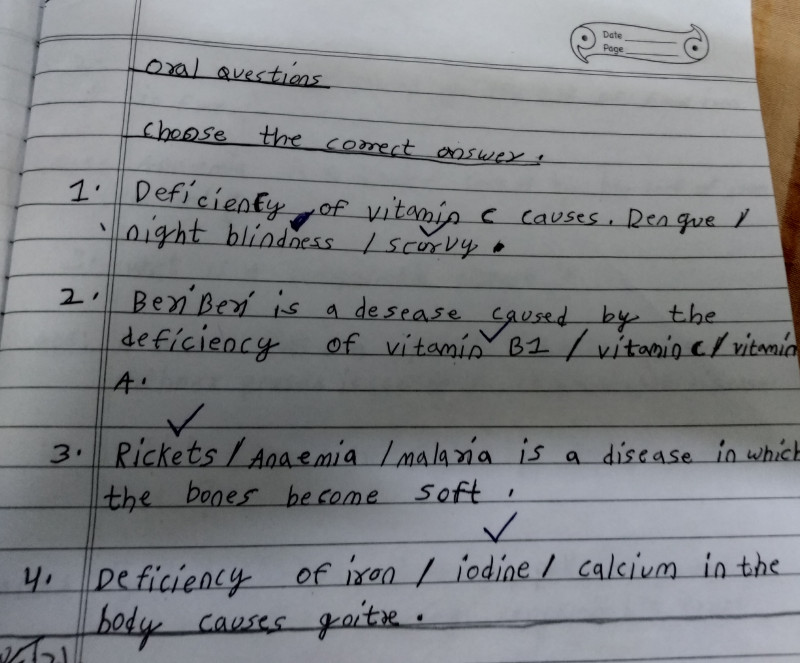 Date
Page
oral questions
choose the correct answer.
1. Deficienty of vitamin c causes. Dengue /
night blindness / scurvy.
2. BeriBeri is a desease caused by the
deficiency of vitamin B1 / vitamin c / vitamin
A.
3. Rickets / Anaemia / malaria is a disease in which
the bones become soft.
4. Deficiency of iron / iodine / calcium in the
body causes goitre.